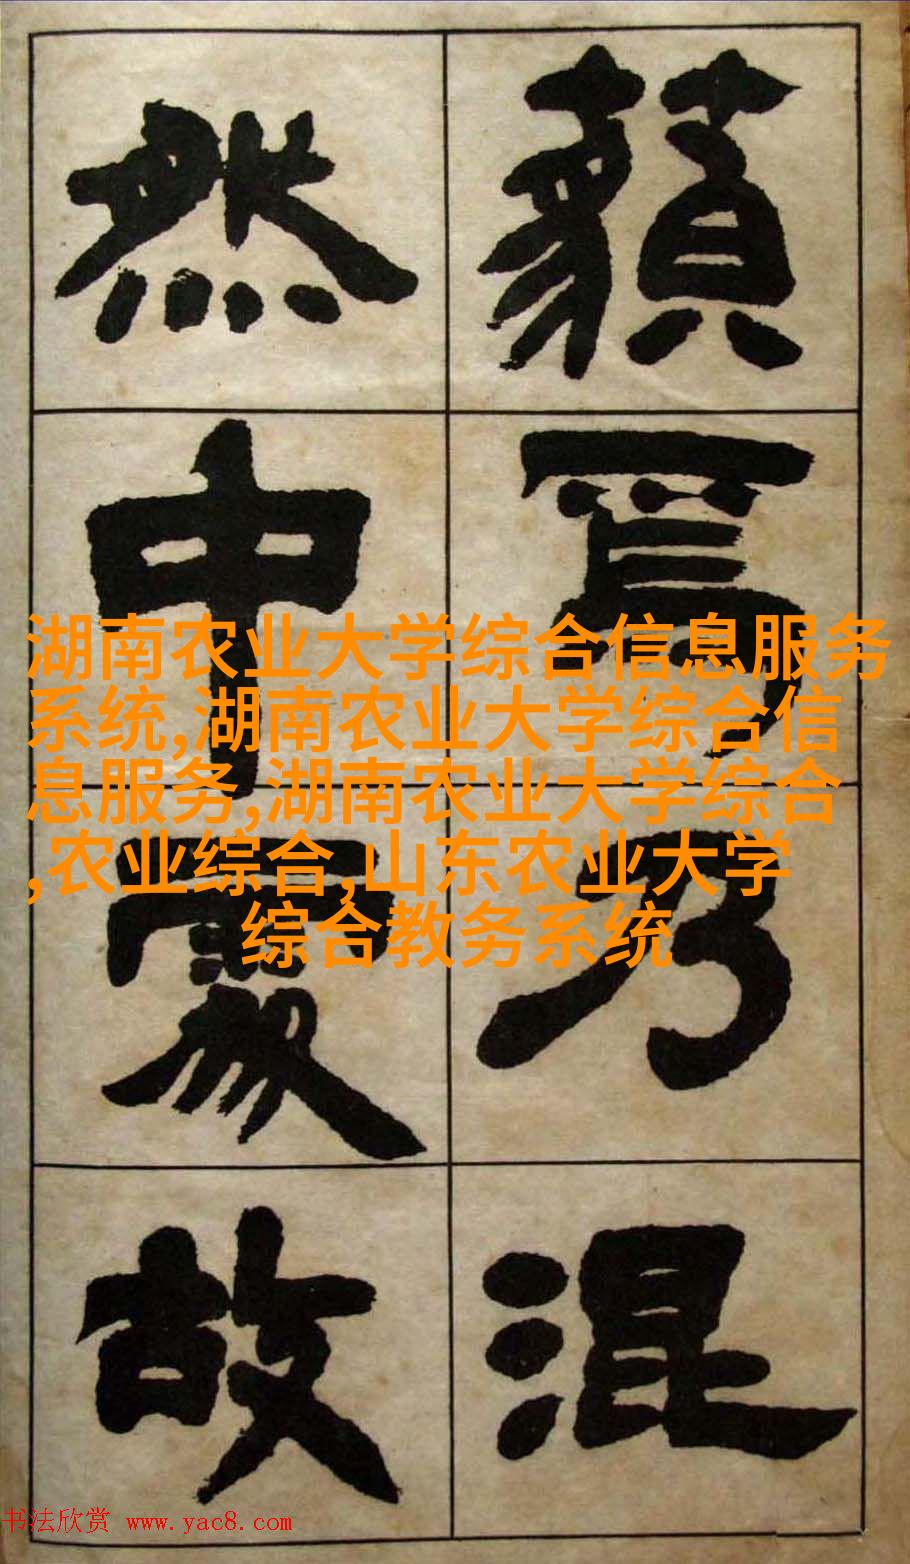 藐焉乃混
然中處故
湖南农业大学综合信息服务
系统,湖南农业大学综合信
息服务,湖南农业大学综合
,农业综合,山东农业大学
综合教务系统
书法欣赏 www.yac8.com